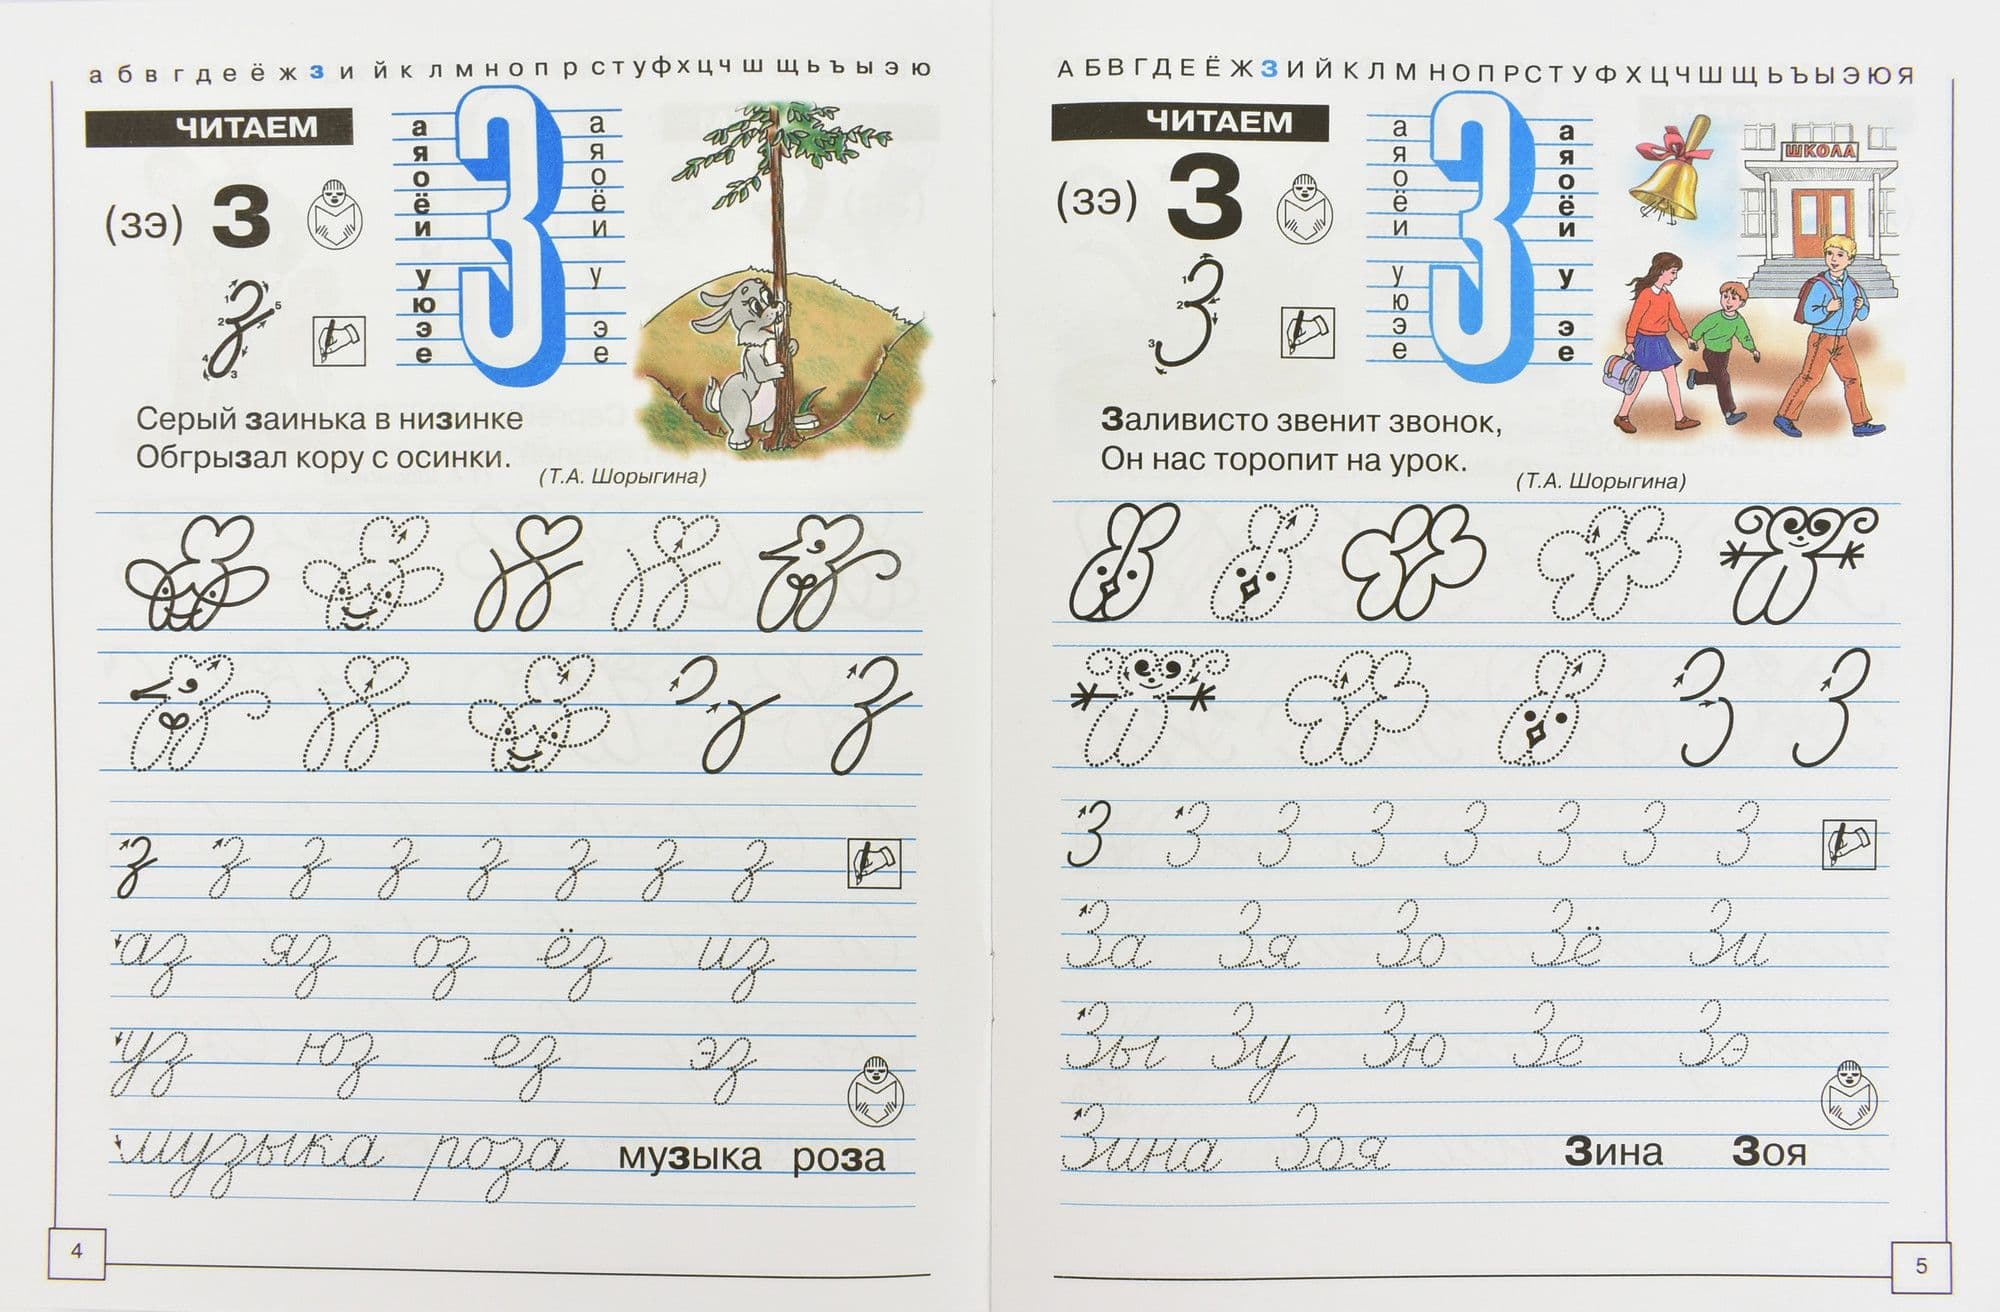 а б в г д е ё ж з и й к л м н о п р с т у ф х ц ч ш щ ь ъ ы э ю
ЧИТАЕМ
(зэ) з
1 2 3 4 5
а а
я я
о о
ё ё
и и
у у
ю
э э
е е
З
Серый заинька в низинке
Обгрызал кору с осинки.
(Т.А. Шорыгина)
з з
з з з з з з з з
аз яз оз ёз из
уз юз ез эз
музыка роза музыка роза
4
А Б В Г Д Е Ё Ж З И Й К Л М Н О П Р С Т У Ф Х Ц Ч Ш Щ Ь Ъ Ы Э Ю Я
ЧИТАЕМ
(зэ) З
З
1 2 3
а а
я я
о о
ё ё
и и
у у
ю
э э
е е
З
ШКОЛА
Заливисто звенит звонок,
Он нас торопит на урок.
(Т.А. Шорыгина)
З З
З З З З З З З З
За Зя Зо Зё Зи
Зы Зу Зю Зе Зэ
Зина Зоя Зина Зоя
5